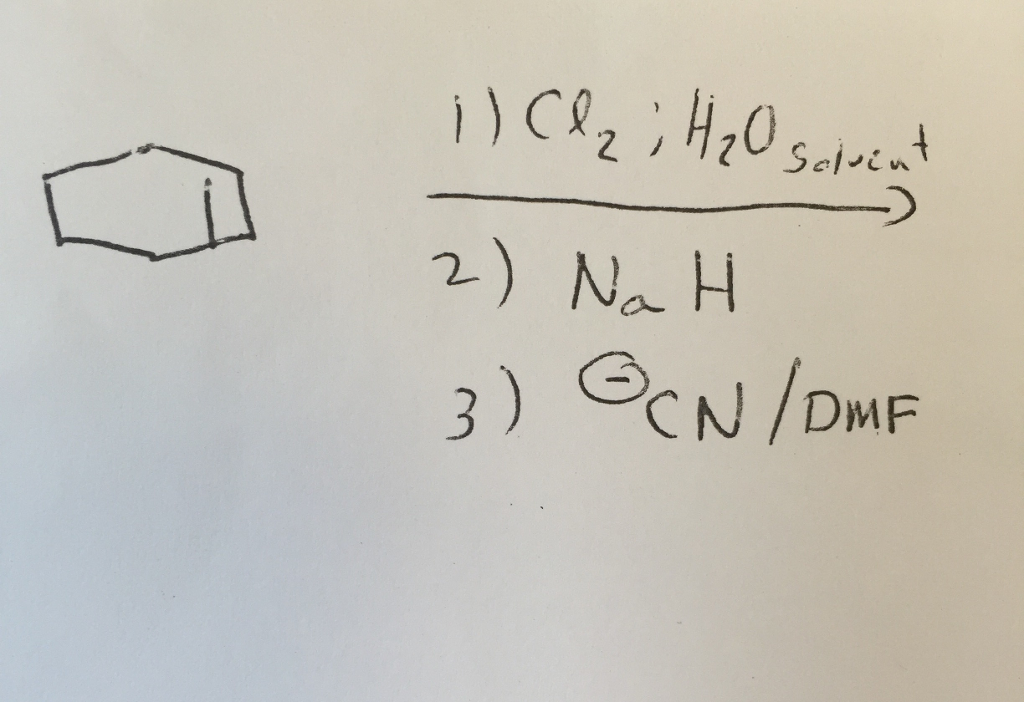 1) Cl₂ ; H₂O solvent
2) NaH
3) ⊖CN / DMF